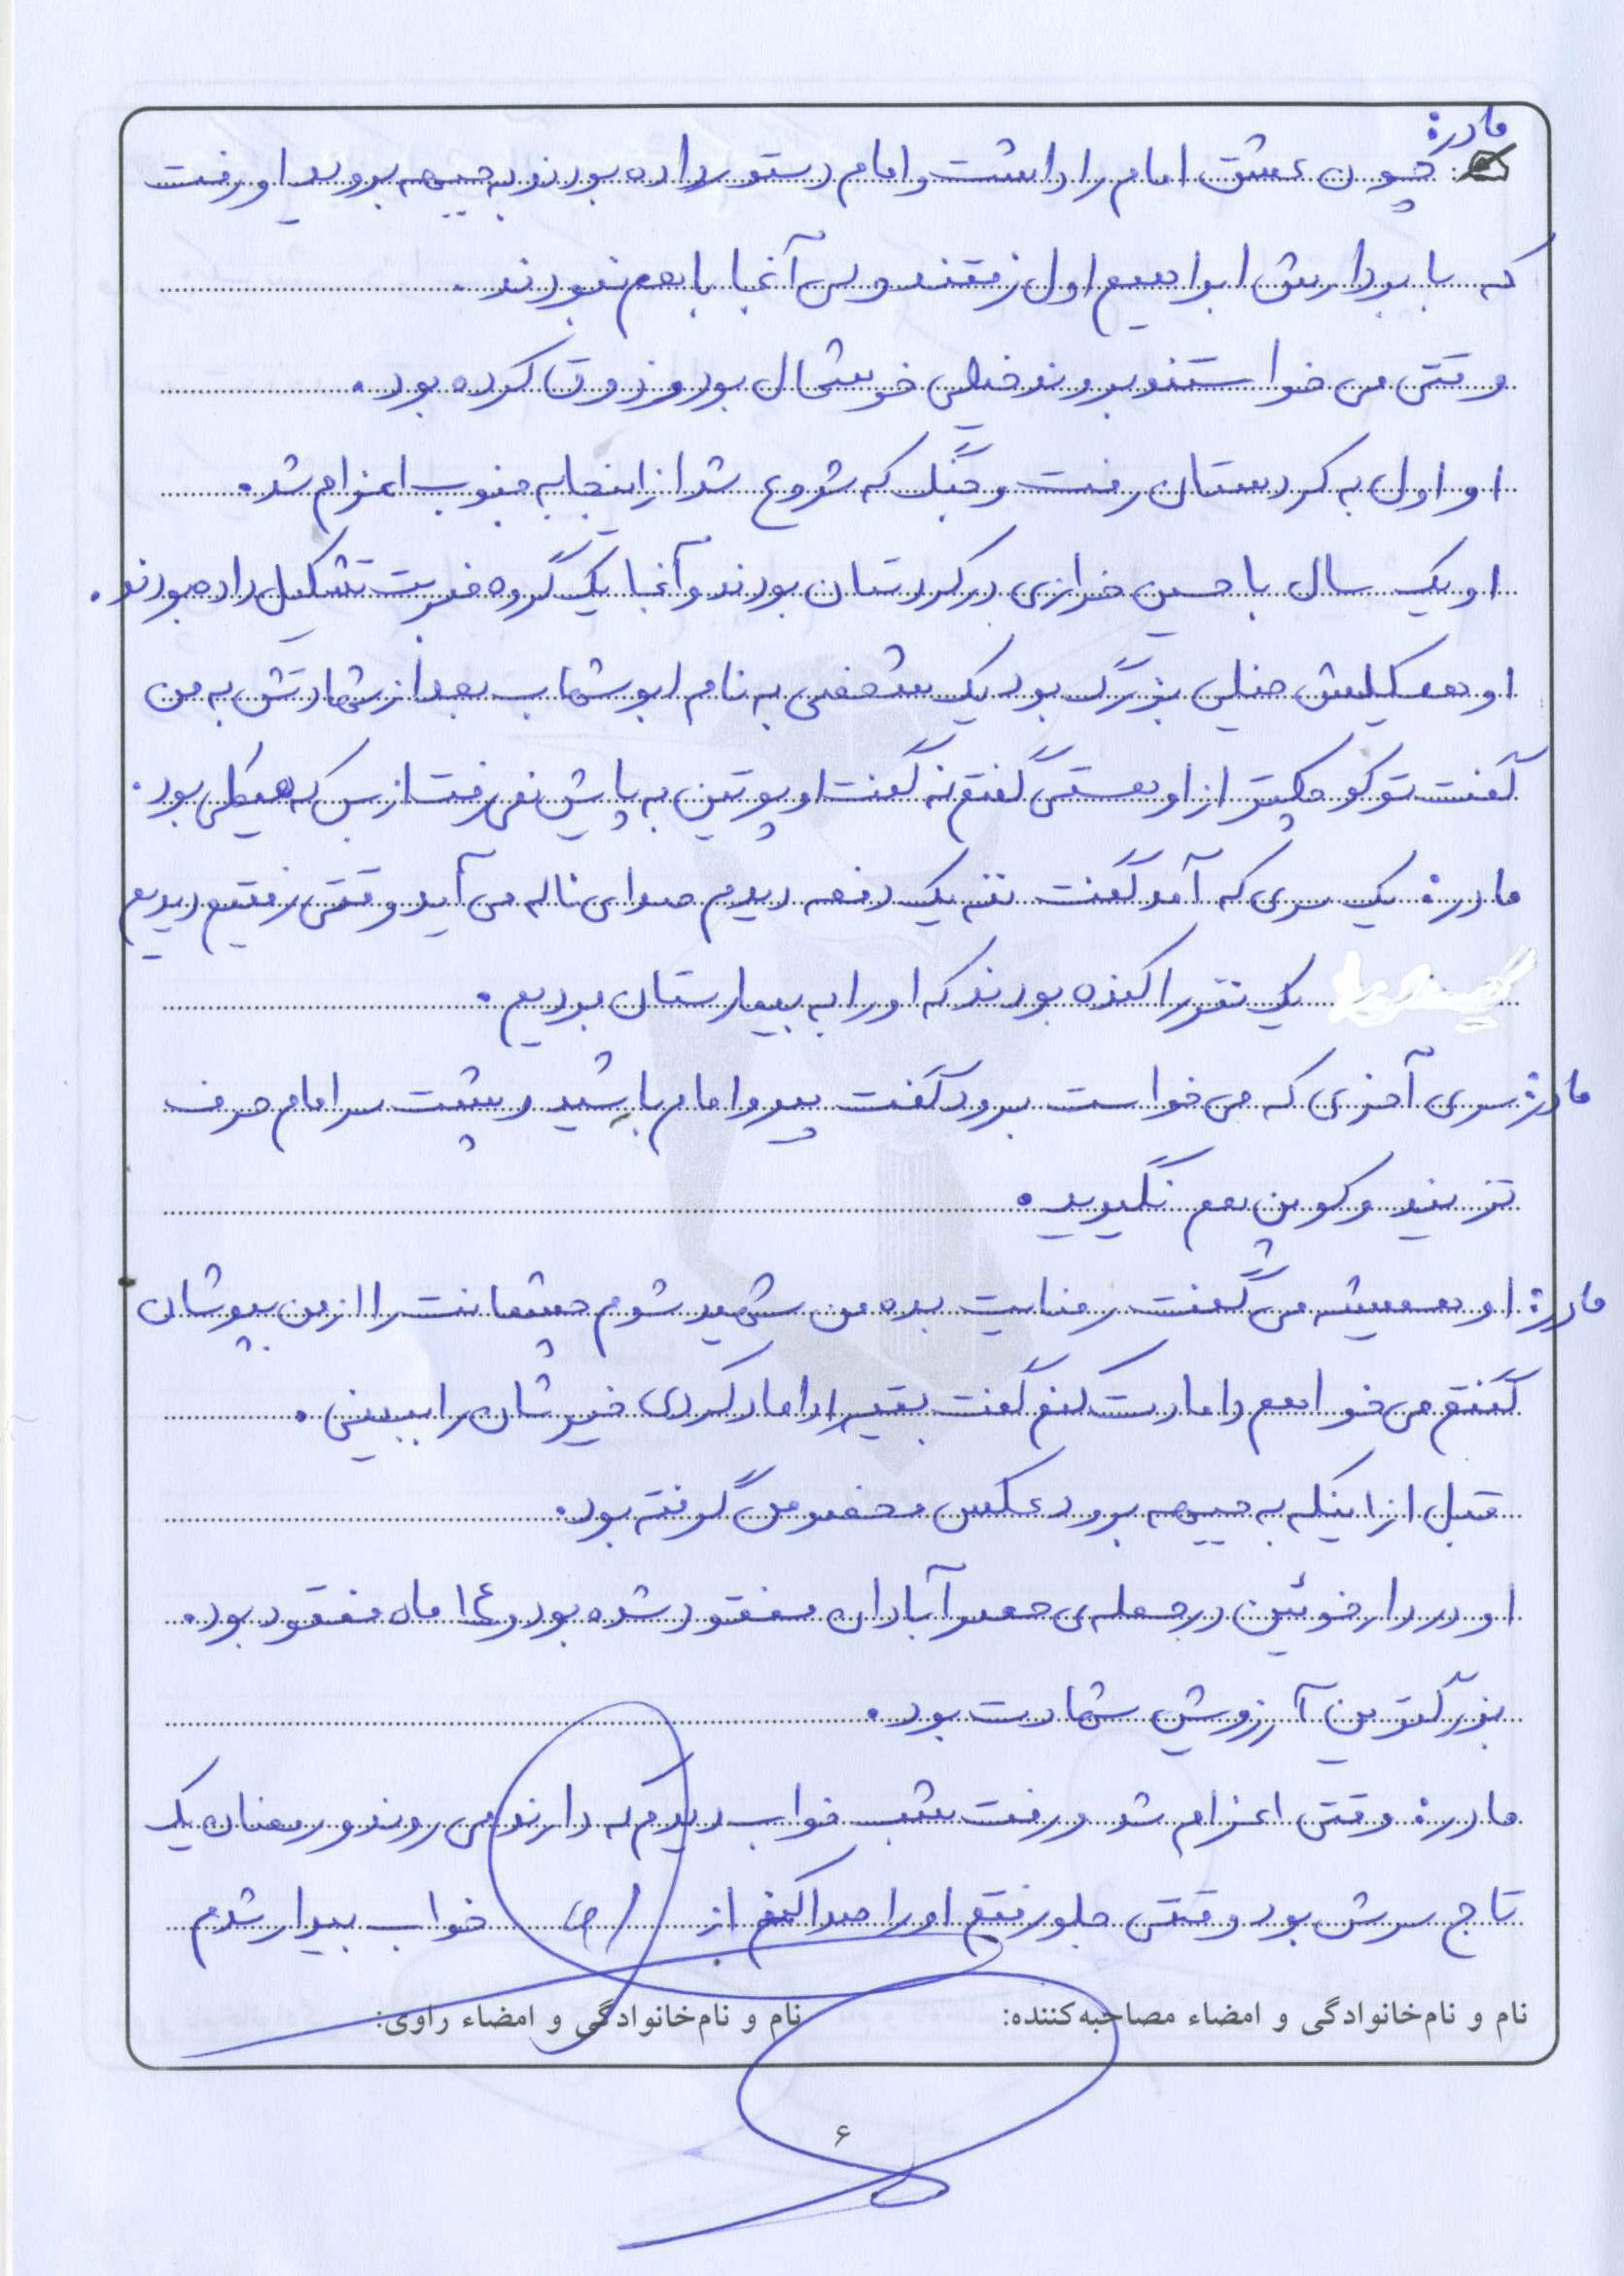 مادر:
چون عشق امام را داشت و امام دستور داده بودند به جبهه بروید او رفت
که با برادرش ابراهیم اول رفتند ولی آنجا با هم نبودند.
وقتی می خواستند بروند خیلی خوشحال بود و ذوق کرده بود.
او اول به کردستان رفت و جنگ که شروع شد از اینجا به جنوب اعزام شد.
او یک سال با حسین خرازی در کردستان بودند و آنجا یک گروه ضربت تشکیل داده بودند.
او هیکلش خیلی بزرگ بود یک شخصی به نام ابوشهاب بعد از شهادتش به من
گفت تو کوچکتر از او هستی گفتم نه گفت او پوتین به پایش نمی رفت از بس که هیکلی بود.
مادر: یک سری که آمد گفت ننه یک دفعه دیدم صدای ناله می آید وقتی رفتیم دیدیم
یک نفر را کنده بودند که او را به بیمارستان بردیم.
مادر: سری آخری که می خواست برود گفت پیرو امام باشید و پشت سر امام حرف
نزنید و کوپن هم نگیرید.
مادر: او همیشه می گفت رضایت بده من شهید شوم چشمانت را از من بپوشان
گفتم می خواهم دامادت کنم گفت بقیه را داماد کردی خیرشان را ببینی.
قبل از اینکه به جبهه برود عکس مخصوص گرفته بود.
او در دارخوئین در حمله‌ی حصر آبادان مفقود شده بود و ۱۴ ماه مفقود بود.
بزرگترین آرزویش شهادت بود.
مادر: وقتی اعزام شد و رفت شب خواب دیدم که دارند می روند و رمضان یک
تاج سرش بود وقتی جلو رفتم او را صدا کنم از خواب بیدار شدم
نام و نام‌خانوادگی و امضاء مصاحبه‌کننده: نام و نام‌خانوادگی و امضاء راوی:
۶